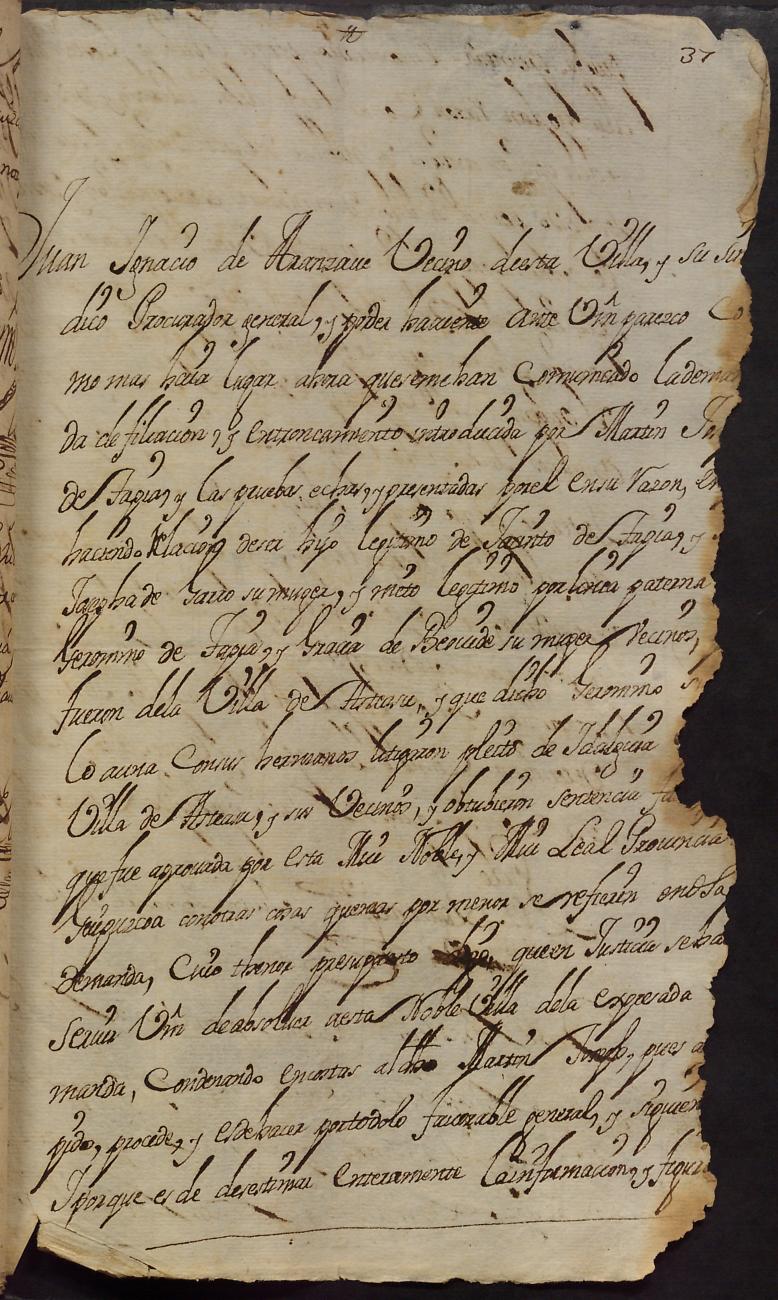 37
Juan Ignacio de Aranzaue Vecino desta Villa, y su Sin
dico Procurador general, y poder haviente ante Vm parezco Co
mo mas haia lugar ahora que seme han Comunicado la deman
da de filiacion, y entroncamiento introducida por Martin Jo
de Tapia, y las pruebas echas, y presentadas por el en su razon, en
haciendo Relacion deser hijo legitimo de Jacinto de Tapia, y
Josepha de Garro su muger, y nieto legitimo por linea paterna
Geronimo de Tapia, y Gracia de Beovide su muger Vecinos,
fueron dela Villa de Asteasu, y que dicho Geronimo
Co auia Consus hermanos litigaron pleito de Idalguia
Villa de Asteasu, y sus Vecinos, y obtubieron sentencia fa
que fue aprouada por esta Mui Noble, y Mui Leal Prouincia
Guipuzcoa conotras cosas quemas por menor se refieren en dha
demanda, Cuio thenor presupuesto digo, que en Justicia se ha
Seruir Vm deabsoluer aesta Noble Villa dela expresada
manda, Condenando encostas al dho Martin Joseph, pues a
pido, procede, y esdehacer portodolo fauorable general, y siguien
I porque es de desestimar enteramente la informacion, y figu